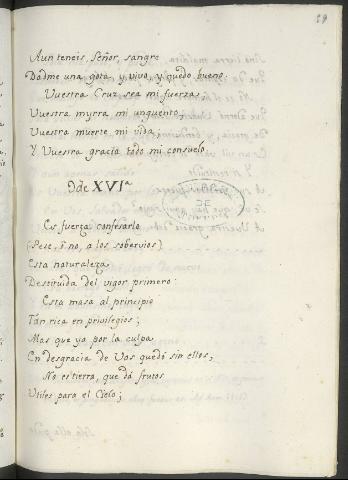 29
Aun teneis, Señor, sangre
Dadme una gota, y vivo, y quedo bueno.
Vuestra Cruz sea mi fuerza;
Vuestra myrra mi unguento;
Vuestra muerte mi vida,
Y Vuestra gracia todo mi consuelo.
Ode XVIª
Es fuerza confesarlo
(Pese, ì no, a los sobervios)
Esta naturaleza
Destituida del vigor primero:
Esta masa al principio
Tan rica en privilegios;
Mas que ya por la culpa
En desgracia de Vos quedó sin ellos,
No es tierra, que dá frutos
Utiles para el Cielo;